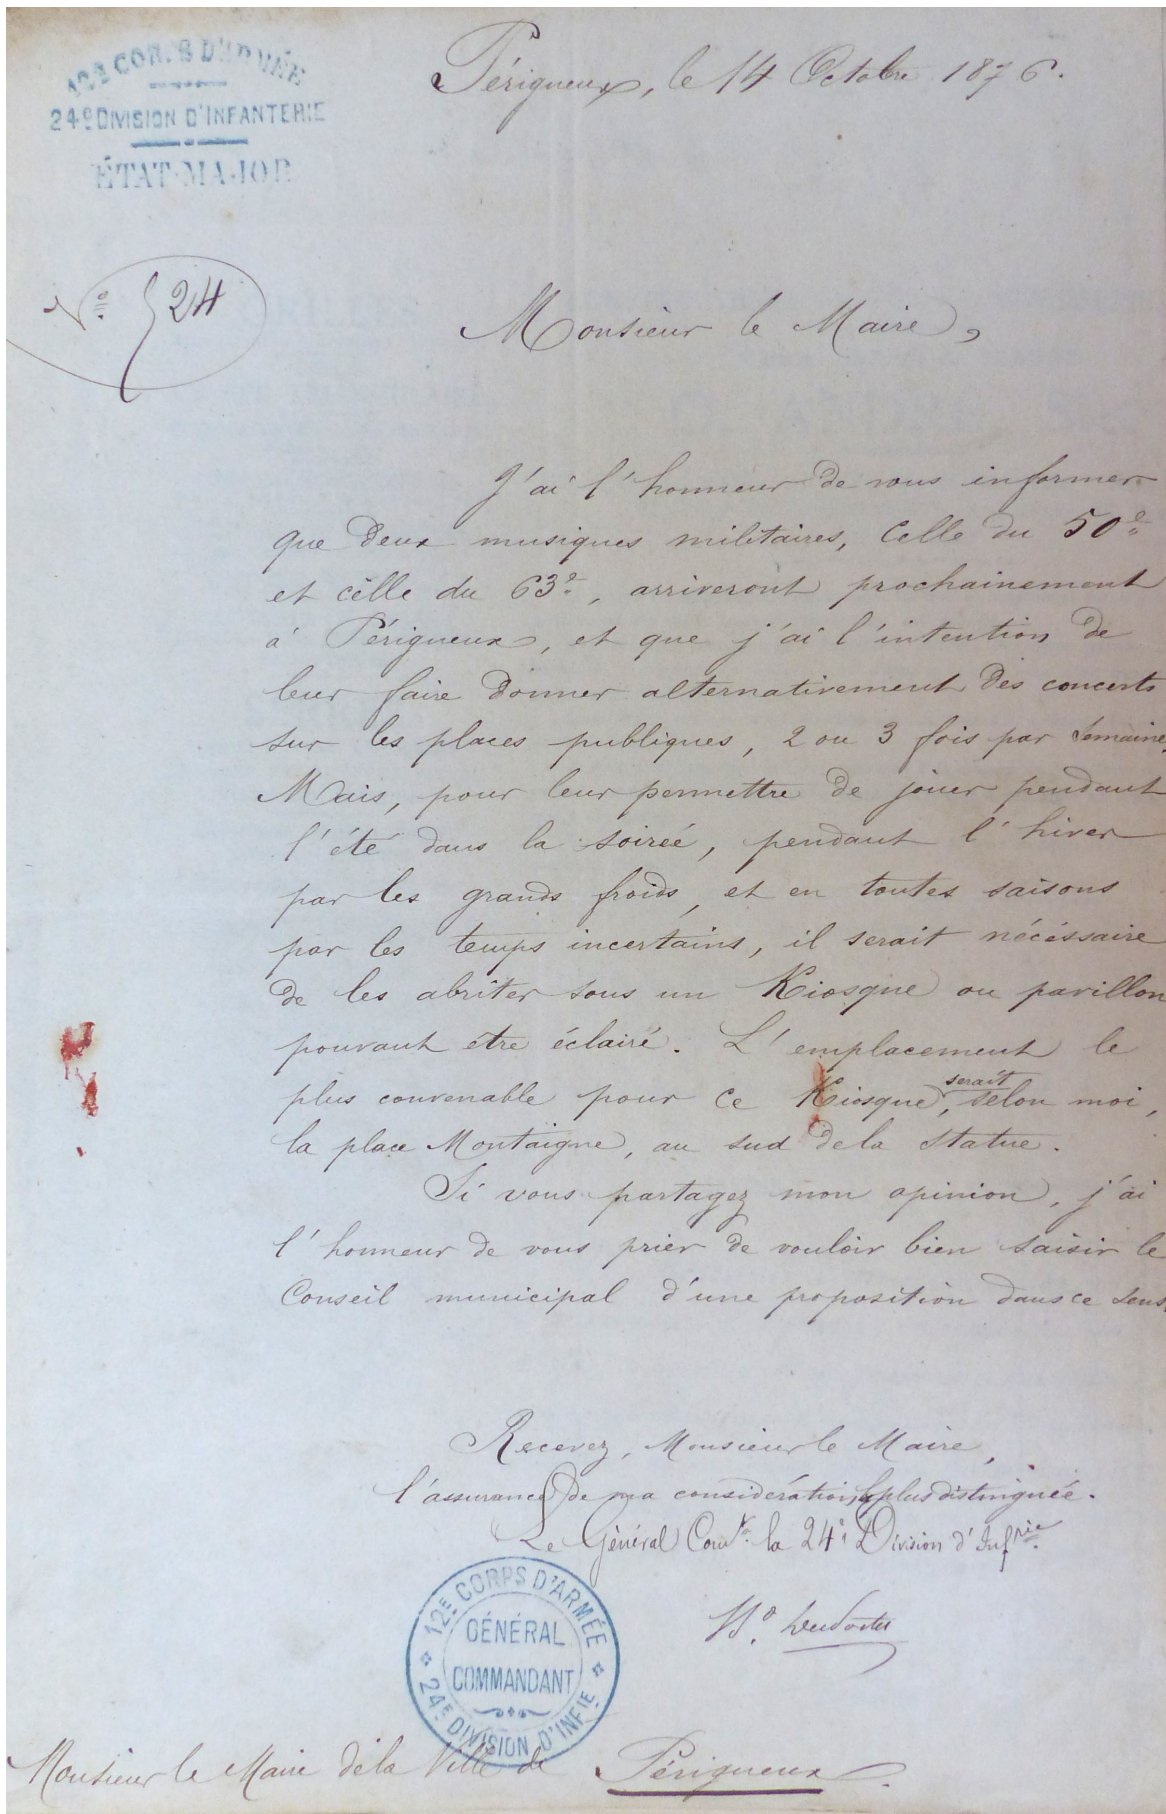 12e CORPS D'ARMÉE
24e DIVISION D'INFANTERIE
ÉTAT-MAJOR
Périgueux, le 14 Octobre 1876.
No. 524
Monsieur le Maire,
J'ai l'honneur de vous informer
que deux musiques militaires, celle du 50e
et celle du 63e, arriveront prochainement
à Périgueux, et que j'ai l'intention de
leur faire donner alternativement des concerts
sur les places publiques, 2 ou 3 fois par semaine.
Mais, pour leur permettre de jouer pendant
l'été dans la soireé, pendant l'hiver
par les grands froids, et en toutes saisons
par les temps incertains, il serait nécéssaire
de les abriter sous un Kiosque ou pavillon
pouvant être éclairé. L'emplacement le
plus convenable pour ce Kiosque, serait selon moi,
la place Montaigne, au sud de la statue.
Si vous partagez mon opinion, j'ai
l'honneur de vous prier de vouloir bien saisir le
Conseil municipal d'une proposition dans ce sens.
Recevez, Monsieur le Maire,
l'assurance de ma considération la plus distinguée.
Le Général Comt. la 24e Division d'Infrie.
12E CORPS D'ARMÉE
GÉNÉRAL
COMMANDANT
24E DIVISION D'INFIE
Monsieur le Maire de la Ville de Périgueux.